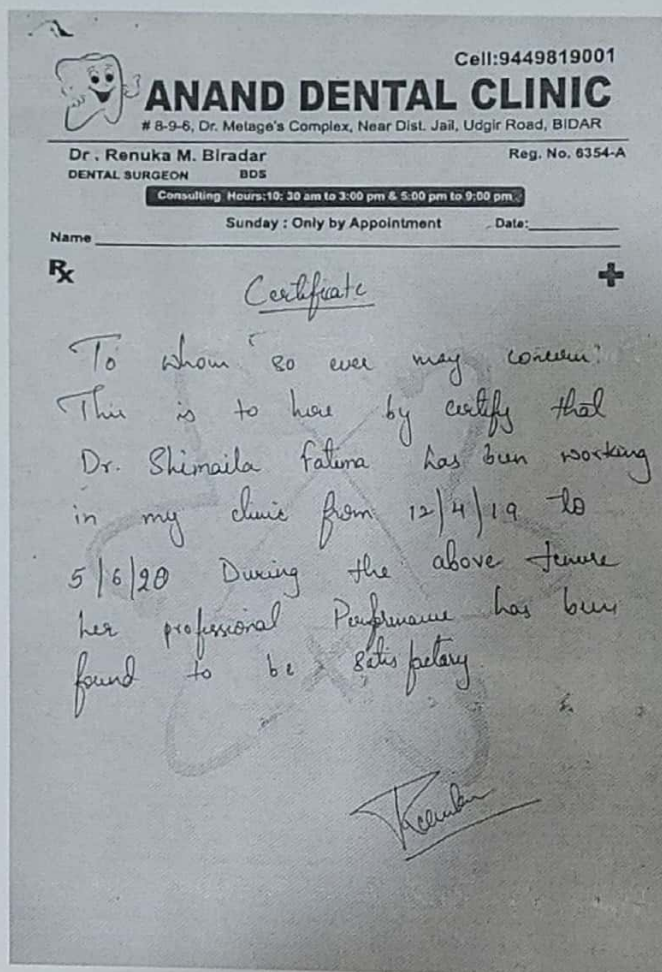 Cell:9449819001
ANAND DENTAL CLINIC
# 8-9-6, Dr. Metage's Complex, Near Dist. Jail, Udgir Road, BIDAR
Dr . Renuka M. Biradar Reg. No. 6354-A
DENTAL SURGEON BDS
Consulting Hours:10: 30 am to 3:00 pm & 5:00 pm to 9:00 pm
Sunday : Only by Appointment Date:
Name
Rx
Certificate
To whom so ever may concern:
This is to here by certify that
Dr. Shimaila Fatima has been working
in my clinic from 12/4/19 to
5/6/20 During the above tenure
her professional Performance has been
found to be satisfactory.
Renuka